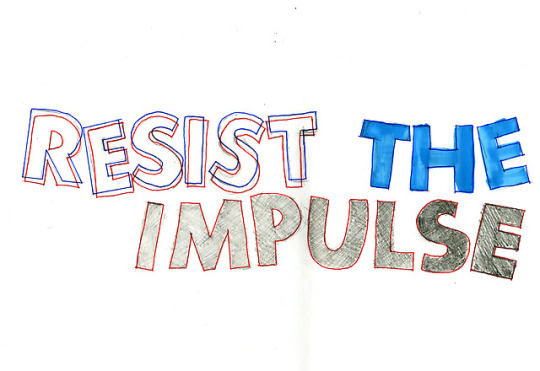 RESIST THE
IMPULSE